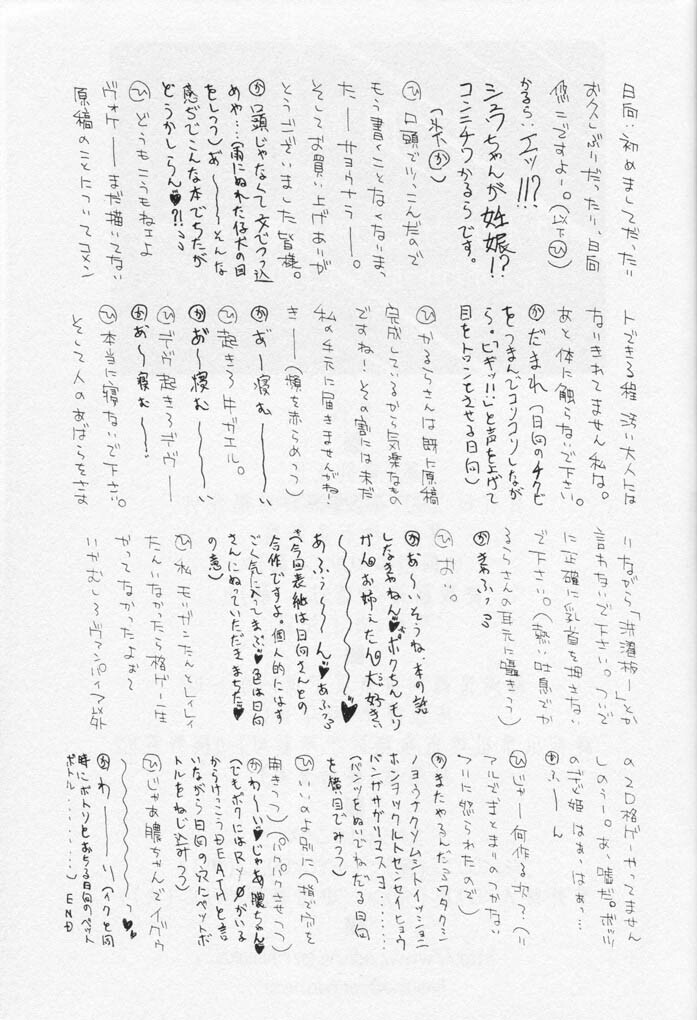 日向:初めましてだったり
お久しぶりだったり、日向
悠二ですよー。(以下㋪)
かるら:エッ!!!?
シュウちゃんが妊娠!?
コンニチワかるらです。
(以下㋕)
㋪口頭でツッこんだので
もう書くことなくない、ま、
た――サヨウナラ――。
そしてお買い上げありが
とうございました皆様。
㋕口頭じゃなくて文でつっ込
めや…(雨にぬれた仔犬の目
をしつつ)あ~~~そんな
感じでこんな本でちたが
どうかしらん♥?!るる
㋪どうもこうもねェよ
ヴォケ――まだ描いてない
原稿のことについてコメン
トできる程汚い大人には
なりきれてません私は。
あと体に触らないで下さい。
㋕だまれ(日向のチクビ
をつまんでコリコリしながら
ら。「ピギッ!!」と声を上げて
目をトロンとさせる日向)
㋪かるらさんは既に原稿
完成しているから気楽なもの
ですね!その割には未だ
私の手元に届きませんがね!
きー―(頬を赤らめつつ)
㋕あ゛ー寝む――い
㋪起きろ牛ガエル。
㋕あ゛~寝む――い
㋪デヴ起きろデヴ――
㋕あ゛~寝む――!
㋪本当に寝ないで下さい。
そして人のあばらをさす
りながら「洗濯板―」とか
言わないで下さい。ついで
に正確に乳首を押さない
で下さい。(熱い吐息でか
るらさんの耳元に囁きつつ)
㋕きゃふっるる
㋪おい。
㋕あ~いそうね、本の話
しなきゃねん♥ボクちんモリ
ガンお姉えたん大好き、
~~~~♥
あふぅ~~ん♥あふっるる
(今回表紙は日向さんとの
合作ですよ。個人的にはす
ごく気に入ってまぷ♥色は日向
さんにぬっていただきまちた♥
の意)
㋪私モリガンたんとレイレイ
たんいなかったら格ゲー一生
やってなかったよおて
いうかむしろヴァンパイア以外
の2D格ゲーやってません
しのぅー。あ、嘘だ。ポッツ
のぎ姫はぁ、はぁっ…
㋕ふーん
㋪じゃー何作る次て?(リ
アルでまとまりのつかない
フリに怒られたので)
㋕またやるんだ?ワタクシ
を横目でみつつ)
(パンツをぬいでねだる日向
㋪いいのよ別に(指で穴を
開きつつ)(パクパクさせつつ)
㋕わ~い♥じゃあ朧ちゃん♥
(でもボクにはRYOがいる
からけっこうDEATHと言
いながら日向の穴にペットボ
トルをねじ込みつつ)
㋪じゃあ朧ちゃんでイヴゥ
~~~~~っ♥
㋕わ――い(イクと同
時にボトリとおちる日向のペット
ボトル………)END